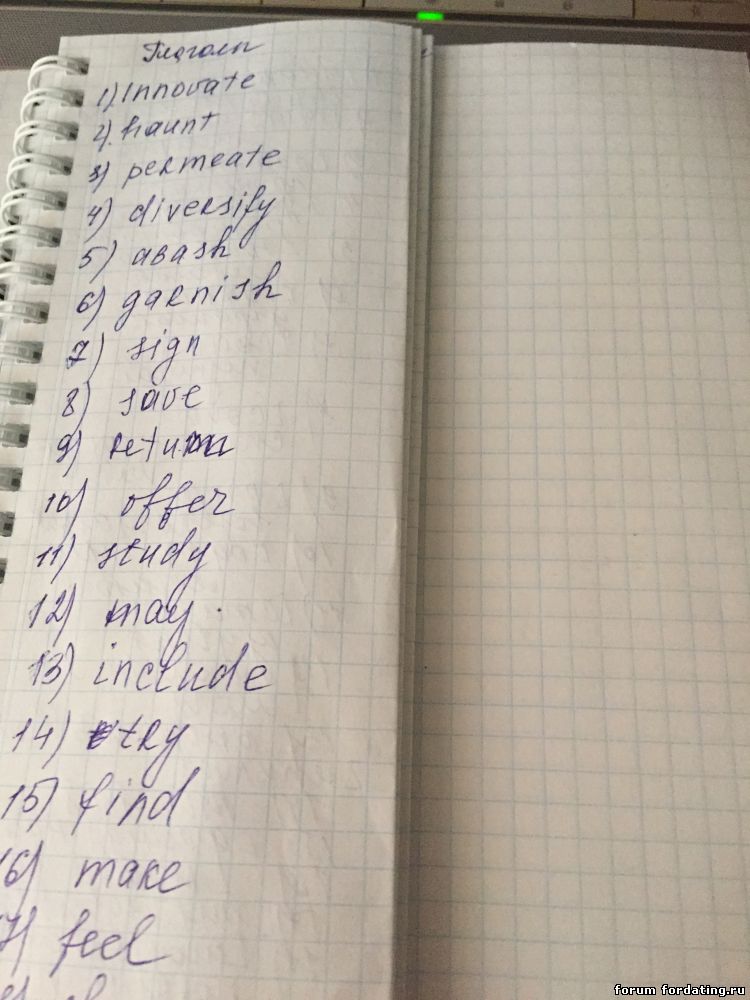 Глаголы
1) Innovate
2) haunt
3) permeate
4) diversify
5) abash
6) garnish
7) sign
8) save
9) return
10) offer
11) study
12) may.
13) include
14) try
15) find
16) make
7) feel
forum fordating.ru